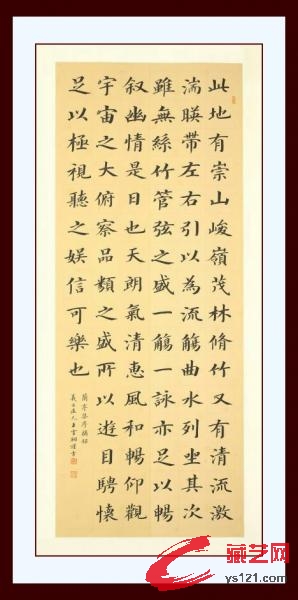 此地有崇山峻嶺茂林脩竹又有清流激
湍暎帶左右引以為流觴曲水列坐其次
雖無絲竹管弦之盛一觴一詠亦足以暢
叙幽情是日也天朗氣清惠風和暢仰觀
宇宙之大俯察品類之盛所以遊目騁懷
足以極視聽之娱信可樂也
蘭亭集序
藏艺网
ys121.com